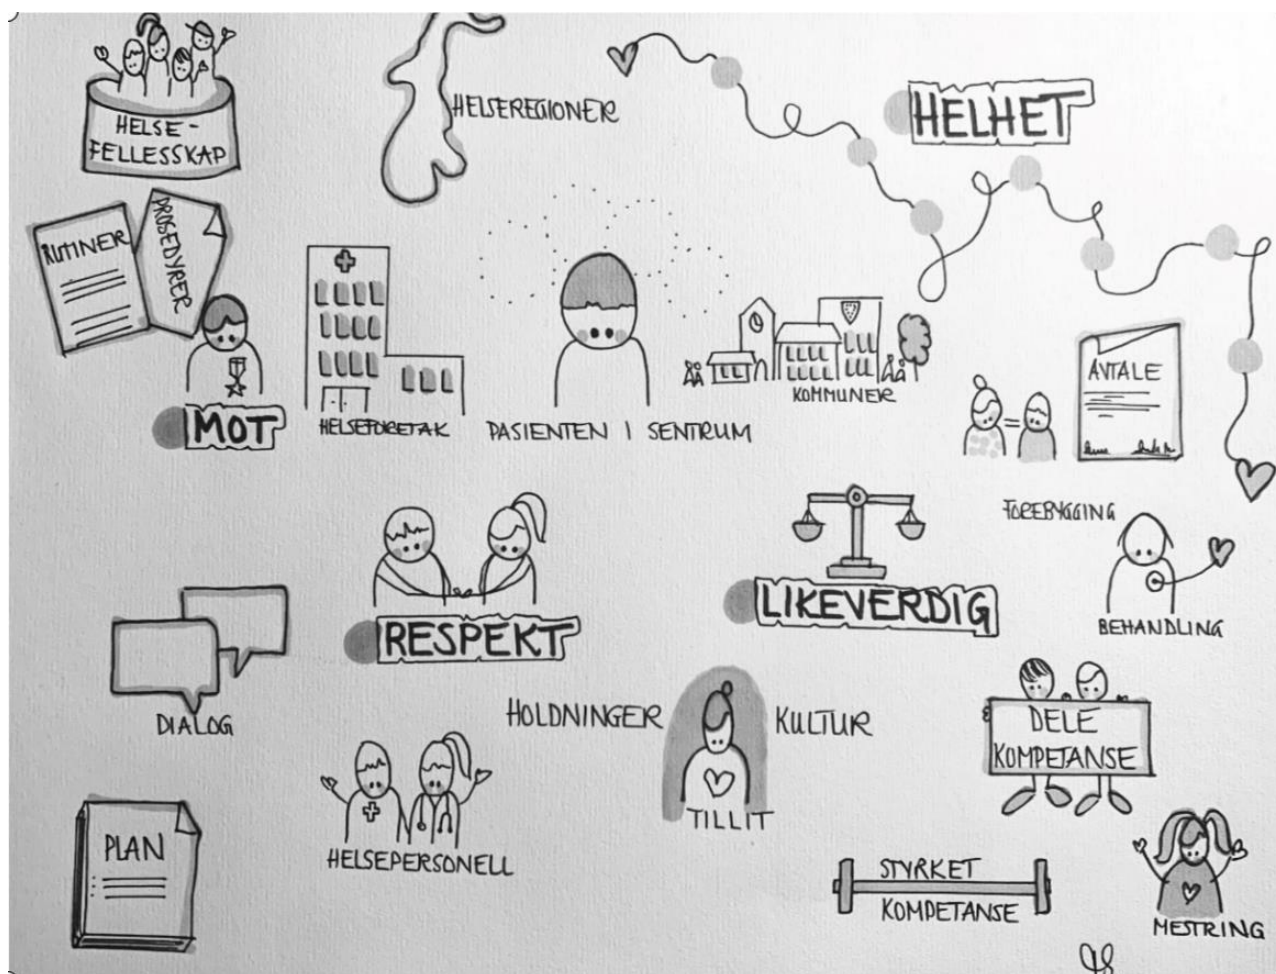 HELSE-
FELLESSKAP
HELSEREGIONER
HELHET
RUTINER
PROSEDYRER
MOT
HELSEFORETAK
PASIENTEN I SENTRUM
KOMMUNER
AVTALE
FOREBYGGING
BEHANDLING
RESPEKT
LIKEVERDIG
DIALOG
HOLDNINGER
KULTUR
TILLIT
DELE
KOMPETANSE
PLAN
HELSEPERSONELL
STYRKET
KOMPETANSE
MESTRING